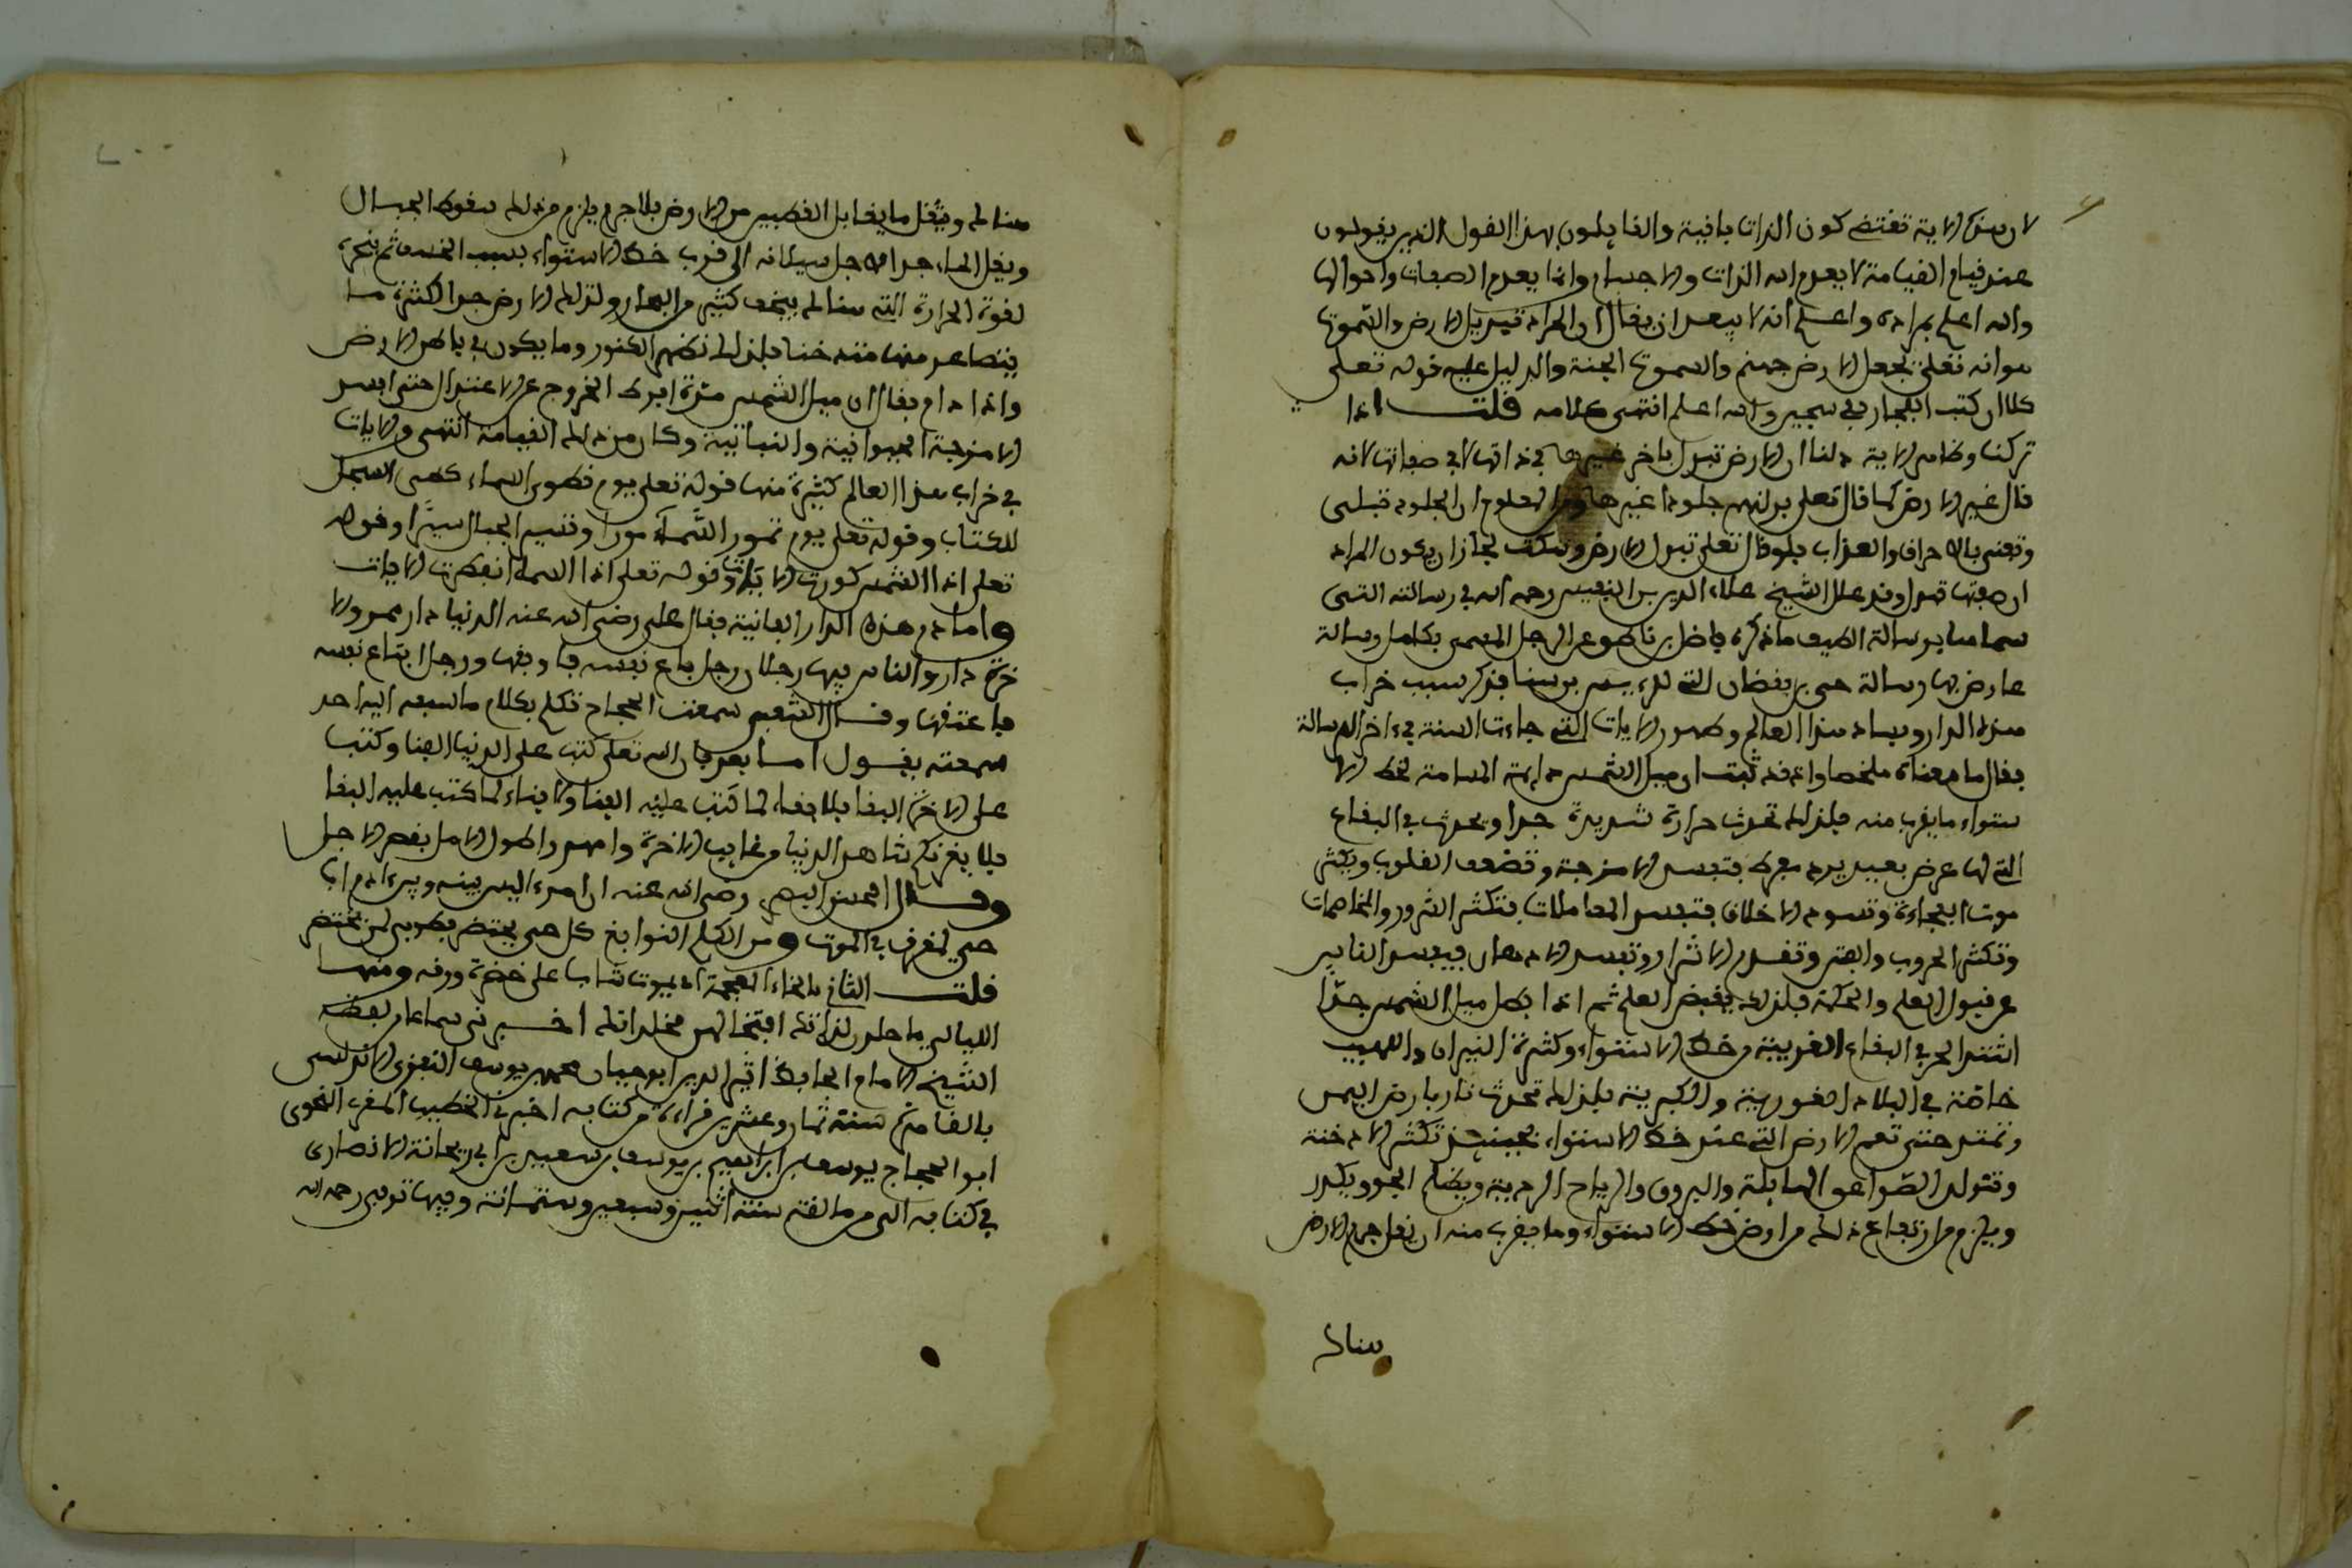 لان هذه الاية تقتضي كون الذات باقية والقائلون بهذا القول الذين يقولون
عند قيام القيامة لا يعدم الله الذات والاجسام وانما يعدم الصفات واحوالها
والله اعلم بمراده واعلم أنه لا يبعد ان يقال ان المراد بتبديل الارض والسموات
هو انه تعلى يجعل الارض جهنم والسموات الجنة والدليل عليه قوله تعلى
كلا ان كتب الفجار لفي سجين والله اعلم انتهى كلامه قلت اذا
تركنا وظاهر الاية دلنا ان الارض تبدل باخر غيرها في ذاتها لا في صفاتها لانه
قال غير الارض كما قال تعلى بدلنهم جلودا غيرها ومن المعلوم ان الجلود تبلى
وتفنى بالاحراق والعذاب فلو قال تعلى تبدل الارض وسكت لجاز ان يكون المراد
ان صفتها تبدل وقد علل الشيخ علاء الدين بن النفيس رحمه الله في رسالته التي
سماها برسالة ما ذكره فاضل بن ناطق عن الرجل المسمى بكامل رسالة
عارض بها رسالة حي بن يقضان التي للرءيس بن سينا فذكر سبب خراب
هذه الدار وفساد هذا العالم وظهور الايات التي جاءت السنة في ءاخر الرسالة
فقال ما معناه ملخصا وانه قد ثبت ان ميل الشمس دايمة المسامة لخط الا
ستواء وما يقرب منه فلذلك تحدث حرارة شديدة جدا ويحدث في البقاع
التي لها عرض بعيد برد مفرط فتفسد الامزجة وتضعف القلوب ويكثر
موت الفجاءة وتسوء الاخلاق فتفسد المعاملات فتكثر الشرور والمخاصمات
وتكثر الحروب والفتن وتتقدم الاشرار وتفسد الاذهان فيبعد الناس
عن قبول العلم والحكمة فلذلك يقبض العلم ثم اذا بطل ميل الشمس جدا
اشتد الحر في البقاع القريبة من خط الاستواء وكثرت النيران واللهيب
خاصة في البلاد الغورية والكبريتية فلذلك تحدث نار بارض اليمن
وتمتد حتى تعم الارض التي عند خط الاستواء فحينئذ تكثر الادخنة
وتتولد الصواعق الهايلة والبروق والرياح الردية ويظلم الجو ويكدر
ويلزم من ارتفاع ذلك من ارض خط الاستواء وما يقرب منه ان يقل جرم الارض
هنالك
هنالك ويثقل ما يقابل القطبين من الارض فلا جرم يلزم من ذلك سقوط الجبال
ويقل الماء جدا لاجل سيلانه الى قرب خط الاستواء بسبب الخسف ثم تخرج
لقوة الحرارة التي هنالك يجف كثير من البحار وتزلزل الارض جدا لكثرة ما
يتصاعد منها فلذلك تظهر الكنوز وما يكون في باطن الارض
واذا دام بقاء ان ميل الشمس مدة افرط الخروج عن الاعتدال حتى افسد
الامزجة الحيوانية والنباتية وكان من ذلك القيامة انتهى والايات
في خراب هذا العالم كثيرة منها قوله تعلى يوم نطوي السماء كطي السجل
للكتاب وقوله تعلى يوم تمور السماء مورا وتسير الجبال سيرا وقوله
تعلى اذا الشمس كورت الايات وقوله تعلى اذا السماء انفطرت الايات
واما ذم هذه الدار الفانية فقال علي رضي الله عنه الدنيا دار ممر والا
خرة دار مقر والناس فيها رجلان رجل باع نفسه فاوبقها ورجل ابتاع نفسه
فاعتقها وقال الشعبي سمعت الحجاج تكلم بكلام ما سبقه اليه احد
سمعته يقول اما بعد فان الله تعلى كتب على الدنيا الفنا وكتب
على الاخرة البقا فلا بقاء لما كتب عليه الفنا ولا فناء لما كتب عليه البقا
فلا يغرنكم شاهد الدنيا عن غايب الاخرة واقهروا طول الامل بقصر الاجل
وقال الحسن البصري رضي الله عنه ان امرء ليس بينه وبين ءادم اب
حي لمعرق في الموت ومن الكلم النوابغ كل حي يحتضر فطوبى لمن يختضر
قلت الثاني بالخاء المعجمة اي يموت شابا على خضرة ورقه ومنها
الليالي ما خلدن لذاتك افتخالهن مخلداتك اخبرني سماعا من لفظه
الشيخ الامام الحافظ اثير الدين ابو حيان محمد بن يوسف النفزي الاندلسي
بالقاهرة سنة ثمان وعشرين قراءة من كتابه اخبرني الخطيب المقرئ النحوي
ابو الحجاج يوسف بن ابراهيم بن يوسف بن سعيد بن ابي ريحانة الانصاري
في كتابه الي من مالقة سنة اثنين وسبعين وستمائة وفيها توفي رحمه الله